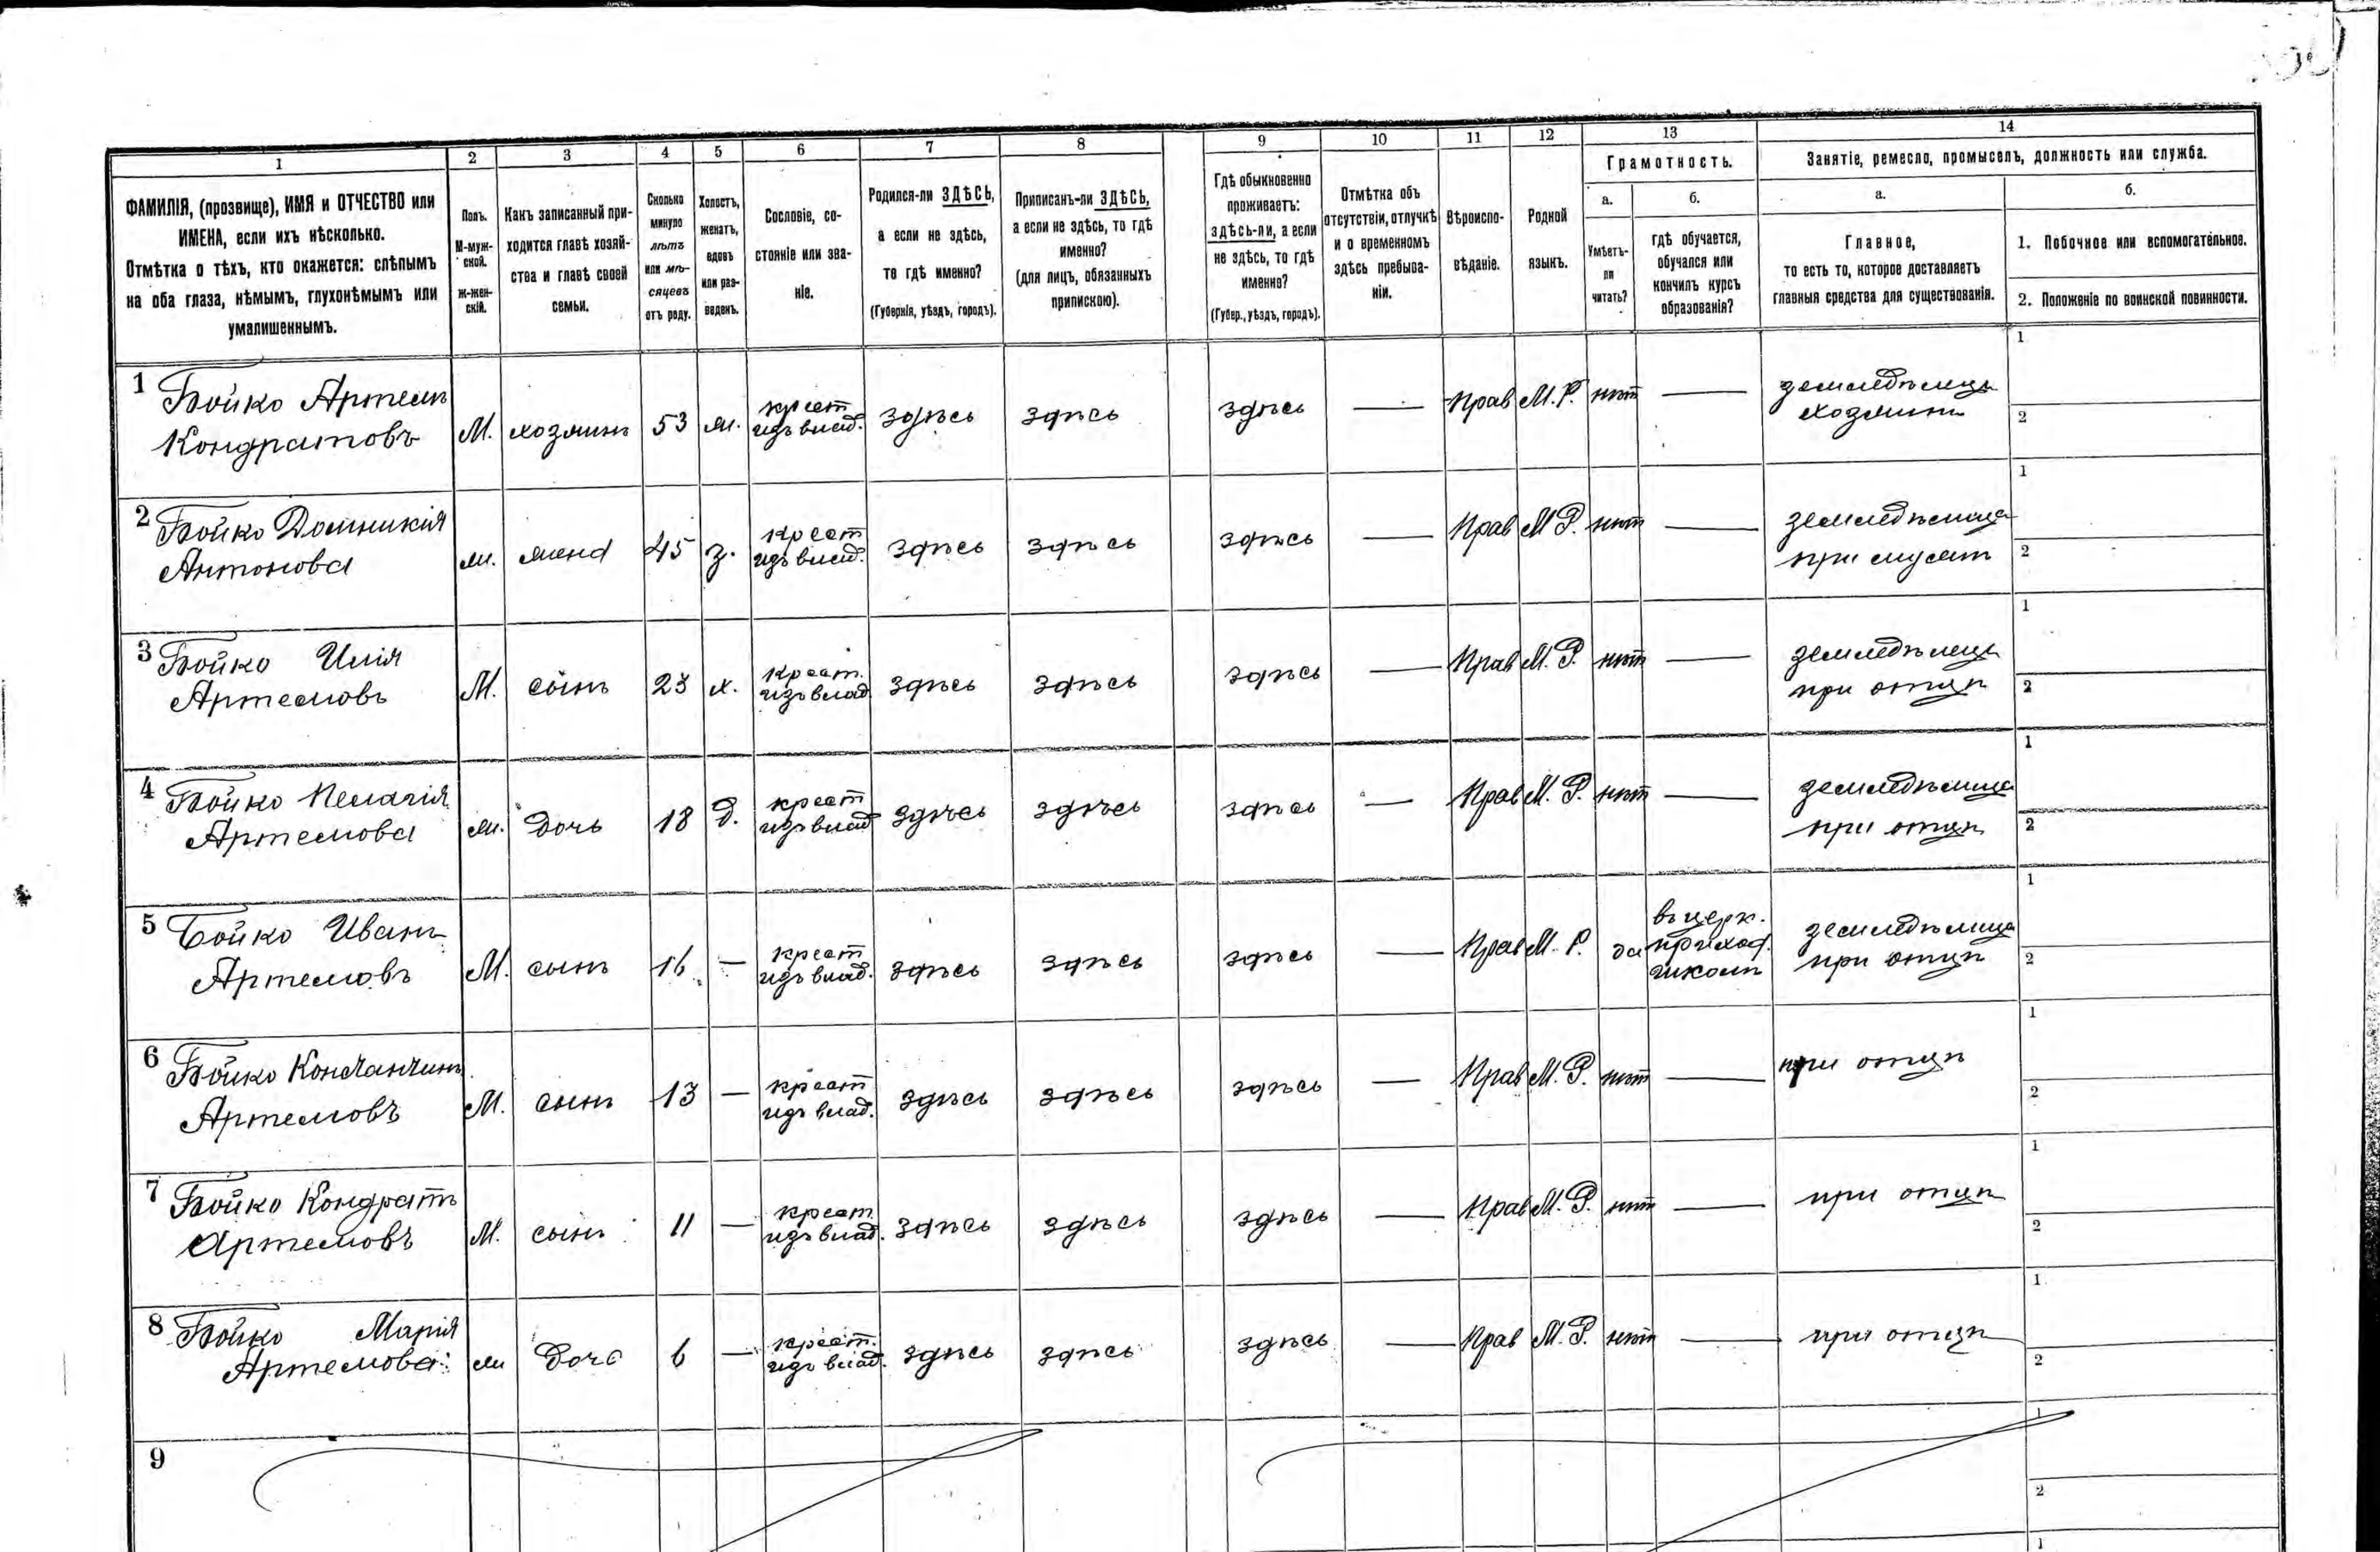 1 2 3 4 5 6 7 8 9 10 11 12 13 14
ФАМИЛІЯ, (прозвище), ИМЯ и ОТЧЕСТВО или
ИМЕНА, если ихъ нѣсколько.
Отмѣтка о тѣхъ, кто окажется: слѣпымъ
на оба глаза, нѣмымъ, глухонѣмымъ или
умалишеннымъ.
Полъ.
М-муж-
ской.
ж-жен-
скій.
Какъ записанный при-
ходится главѣ хозяй-
ства и главѣ своей
семьи.
Сколько
минуло
лѣтъ
или мѣ-
сяцевъ
отъ роду.
Холостъ,
женатъ,
вдовъ
или раз-
веденъ.
Сословіе, со-
стояніе или зва-
ніе.
Родился-ли ЗДѢСЬ,
а если не здѣсь,
то гдѣ именно?
(Губернія, уѣздъ, городъ).
Приписанъ-ли ЗДѢСЬ,
а если не здѣсь, то гдѣ
именно?
(для лицъ, обязанныхъ
припискою).
Гдѣ обыкновенно
проживаетъ:
здѣсь-ли, а если
не здѣсь, то гдѣ
именно?
(Губер., уѣздъ, городъ).
Отмѣтка объ
отсутствіи, отлучкѣ
и о временномъ
здѣсь пребыва-
ніи.
Вѣроиспо-
вѣданіе.
Родной
языкъ.
Грамотность.
а.
Умѣетъ-
ли
читать?
б.
гдѣ обучается,
обучался или
кончилъ курсъ
образованія?
Занятіе, ремесло, промыселъ, должность или служба.
а.
Главное,
то есть то, которое доставляетъ
главныя средства для существованія.
б.
1. Побочное или вспомогательное.
2. Положеніе по воинской повинности.
1 Бойко Артемъ
Кондратовъ
М. хозяинъ 53 ж.
крест
изъ влад.
здѣсь здѣсь здѣсь — Прав М.Р. нѣт —
земледѣлецъ
хозяинъ
1
2
2 Бойко Домникія
Антонова
ж. жена 45 з.
крест
изъ влад.
здѣсь здѣсь здѣсь — Прав М Р. нѣт —
земледѣлица
при мужѣ
1
2
3 Бойко Илія
Артемовъ
М. сынъ 23 х.
крест.
изъ влад
здѣсь здѣсь здѣсь — Прав М. Р. нѣт —
земледѣлецъ
при отцѣ
1
2
4 Бойко Пелагія
Артемова
ж. дочь 18 д.
крест
изъ влад
здѣсь здѣсь здѣсь — Прав М. Р. нѣт —
земледѣлица
при отцѣ
1
2
5 Бойко Иванъ
Артемовъ
М. сынъ 16 —
крест
изъ влад.
здѣсь здѣсь здѣсь — Прав М. Р. да
въ церк.
приход.
школѣ
земледѣлица
при отцѣ
1
2
6 Бойко Константинъ
Артемовъ
М. сынъ 13 —
крест
изъ влад.
здѣсь здѣсь здѣсь — Прав М. Р. нѣт —
при отцѣ
1
2
7 Бойко Кондратъ
Артемовъ
М. сынъ 11 —
крест.
изъ влад.
здѣсь здѣсь здѣсь — Прав М. Р. нѣт —
при отцѣ
1
2
8 Бойко Марія
Артемова
ж дочь 6 —
крест.
изъ влад.
здѣсь здѣсь здѣсь — Прав М. Р. нѣт —
при отцѣ
1
2
9
1
2
1